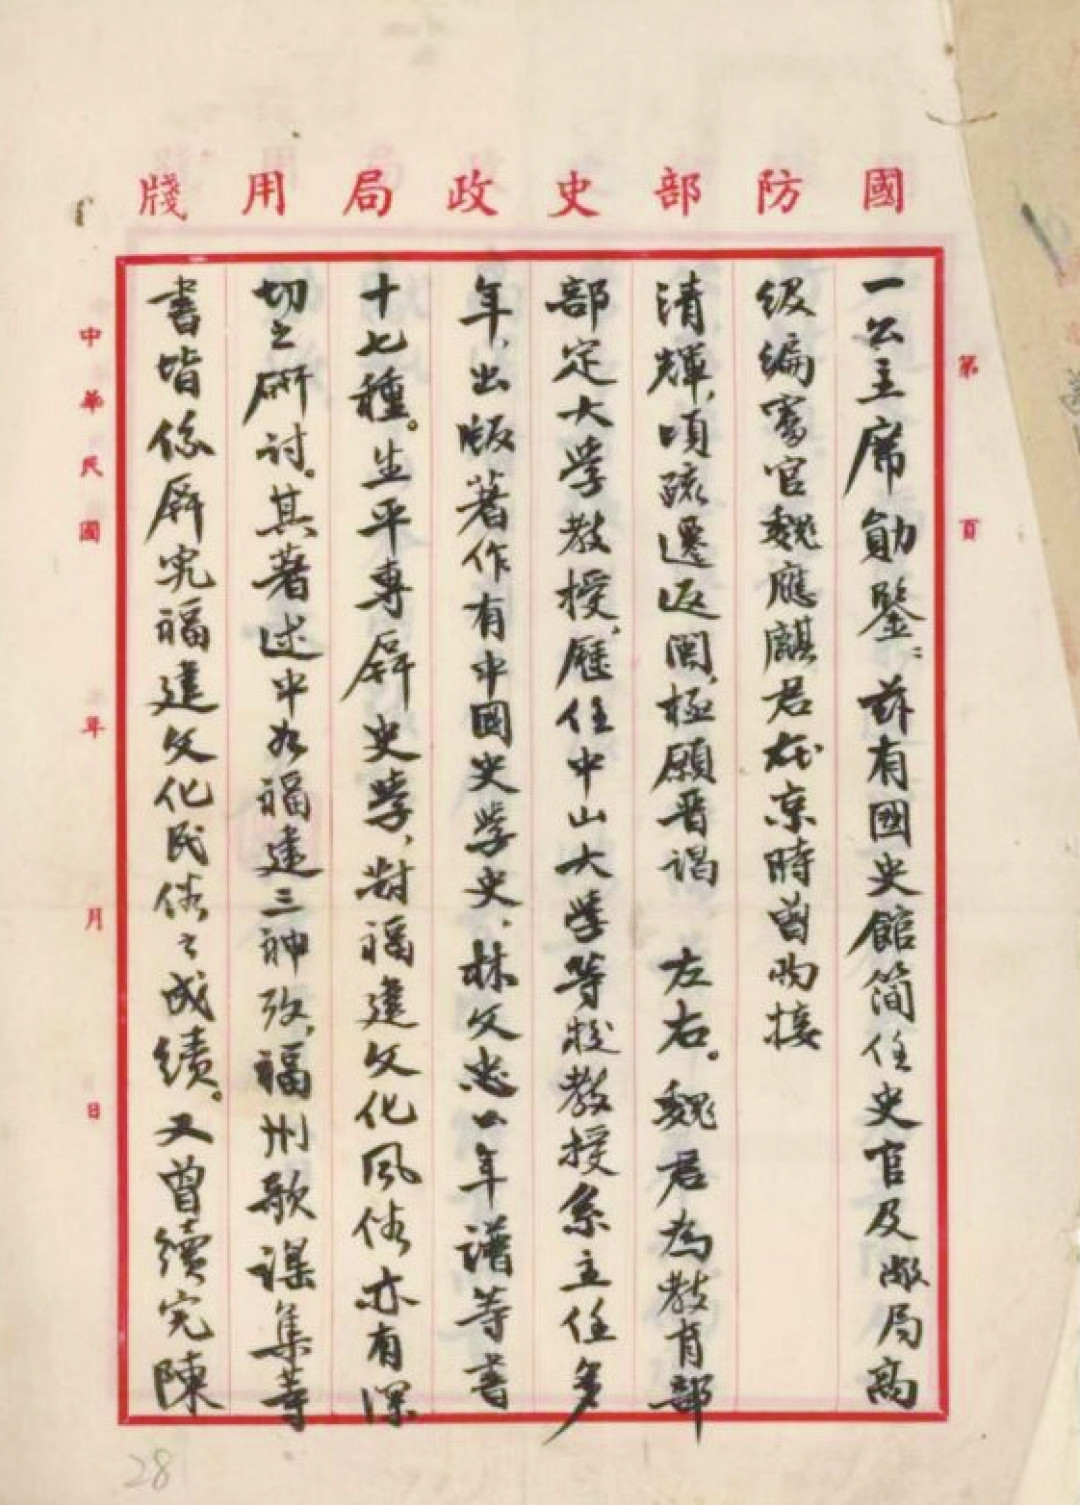 國防部史政局用牋
第 頁
一公主席勛鑒：茲有國史館简任史官及敝局高
级编審官魏應麒君在京時曾吻接
清輝，頃疏遷返閩，極願晋谒 左右。魏君為教育部
部定大学教授，歷任中山大学等校教授系主任多
年，出版著作有中國史学史、林文忠公年譜等書
十七種。生平専研史學，對福建文化風俗亦有深
切之研讨。其著述中如福建三神攷，福州歌谣集等
書皆係研究福建文化民俗之成績。又曾續完陳
中華民國 年 月 日
28